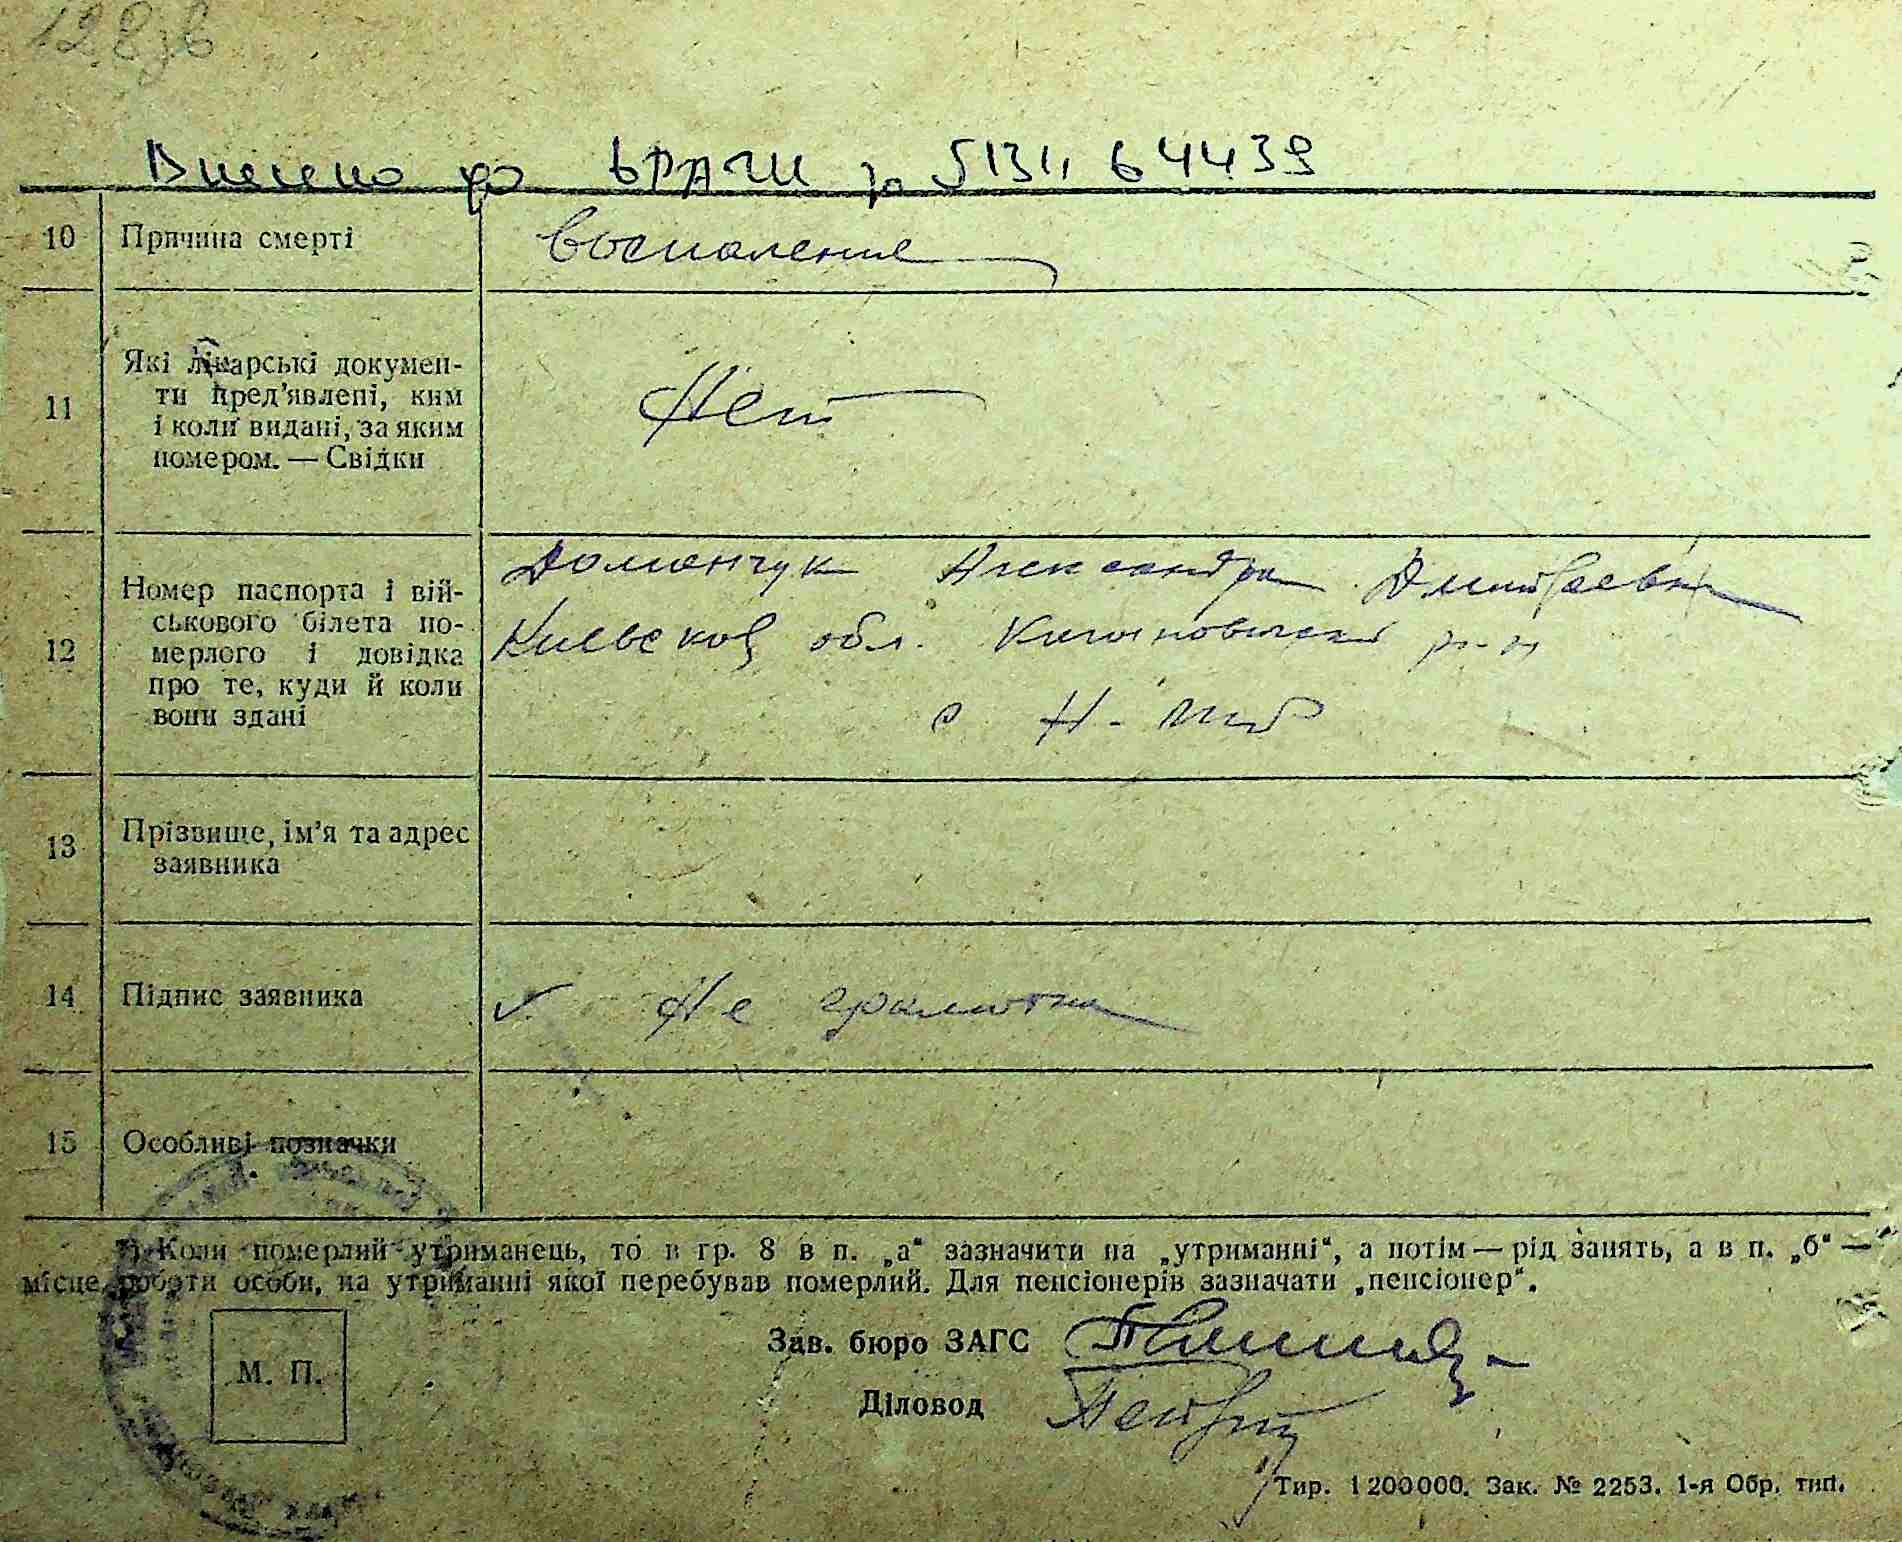 128зв
Внесено до ДРАЦС за 5131 64439
10 Причина смерті воспаление
11 Які лікарські документи
ти пред'явлені, ким
і коли видані, за яким
номером. — Свідки
Нет
12 Номер паспорта і вій-
ськового білета по-
мерлого і довідка
про те, куди й коли
вони здані
Доманчук Александра Дмитриевна
Киевской обл. Кагановичский р-н
с Н-
13 Прізвище, ім'я та адрес
заявника
14 Підпис заявника v. Не грамотна
15 Особливі позначки
*) Коли померлий утриманець, то в гр. 8 в п. „а“ зазначити на „утриманні“, а потім — рід занять, а в п. „б“ —
місце роботи особи, на утриманні якої перебував померлий. Для пенсіонерів зазначати „пенсіонер“.
М. П.
Зав. бюро ЗАГС
Діловод
Тир. 1200000. Зак. № 2253. 1-я Обр. тип.